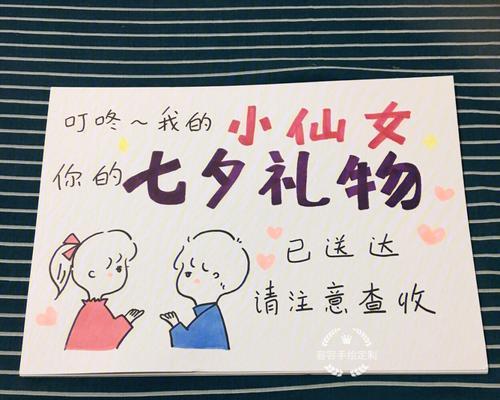 叮咚～我的小仙女
你的七夕礼物
已送达
请注意查收
容容手绘定制